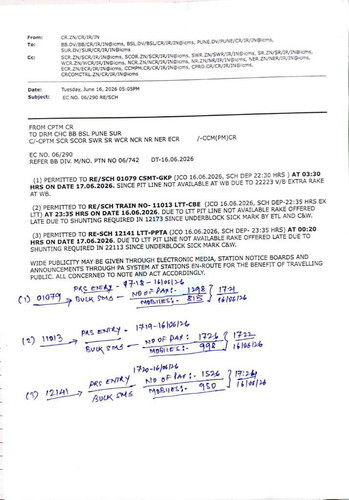 From: CR.ZN/CR/IR/IN
To: BB.DV/BB/CR/IR/IN@icms, BSL.DV/BSL/CR/IR/IN@icms, PUNE.DV/PUNE/CR/IR/IN@icms,
SUR.DV/SUR/CR/IR/IN@icms
Cc: SCR.ZN/SCR/IR/IN@icms, SCOR.ZN/SCOR/IR/IN@icms, SWR.ZN/SWR/IR/IN@icms, SR.ZN/SR/IR/IN@icms,
WCR.ZN/WCR/IR/IN@icms, NCR.ZN/NCR/IR/IN@icms, NR.ZN/NR/IR/IN@icms, NER.ZN/NER/IR/IN@icms,
ECR.ZN/ECR/IR/IN@icms, CCMPM.CR/CR/IR/IN@icms, CPRO.CR/CR/IR/IN@icms,
CRCOMCTRL.ZN/CR/IR/IN@icms
Date: Tuesday, June 16, 2026 05:05PM
Subject: EC NO. 06/290 RE/SCH
FROM CPTM CR
TO DRM CHC BB BSL PUNE SUR
C/-CPTM SCR SCOR SWR SR WCR NCR NR NER ECR /-CCM(PM)CR
EC NO. 06/290
REFER BB DIV. M/NO. PTN NO 06/742 DT-16.06.2026
(1) PERMITTED TO RE/SCH 01079 CSMT-GKP (JCO 16.06.2026, SCH DEP-22:30 HRS ) AT 03:30
HRS ON DATE 17.06.2026. SINCE PIT LINE NOT AVAILABLE AT WB DUE TO 22223 V/B EXTRA RAKE
AT WB.
(2) PERMITTED TO RE/SCH TRAIN NO- 11013 LTT-CBE (JCO 16.06.2026, SCH DEP-22:35 HRS EX
LTT) AT 23:35 HRS ON DATE 16.06.2026. DUE TO LTT PIT LINE NOT AVAILABLE RAKE OFFERED
LATE DUE TO SHUNTING REQUIRED IN 12173 SINCE UNDERBLOCK SICK MARK BY ETL AND C&W.
(3) PERMITTED TO RE-SCH 12141 LTT-PPTA (JCO 16.06.2026, SCH DEP-23:35 HRS) AT 00:20
HRS ON DATE 17.06.2026. DUE TO LTT PIT LINE NOT AVAILABLE RAKE OFFERED LATE DUE TO
SHUNTING REQUIRED IN 22113 SINCE UNDERBLOCK SICK MARK C&W.
WIDE PUBLICITY MAY BE GIVEN THROUGH ELECTRONIC MEDIA, STATION NOTICE BOARDS AND
ANNOUNCEMENTS THROUGH PA SYSTEM AT STATIONS EN-ROUTE FOR THE BENEFIT OF TRAVELLING
PUBLIC. ALL CONCERNED TO NOTE AND ACT ACCORDINGLY.
PRS ENTRY - 1718 - 16/06/26
(1) 01079 BULK SMS - NO OF PAX: 1298 1721
MOBILES: 815 16/06/26
PRS ENTRY - 1719-16/06/26
(2) 11013 BULK SMS - NO OF PAX: 1726 1722
MOBILES: 998 16/06/26
1720-16/06/26
PRS ENTRY
(3) 12141 BULK SMS NO OF PAX: 1526
MOBILES: 950 16/06/26